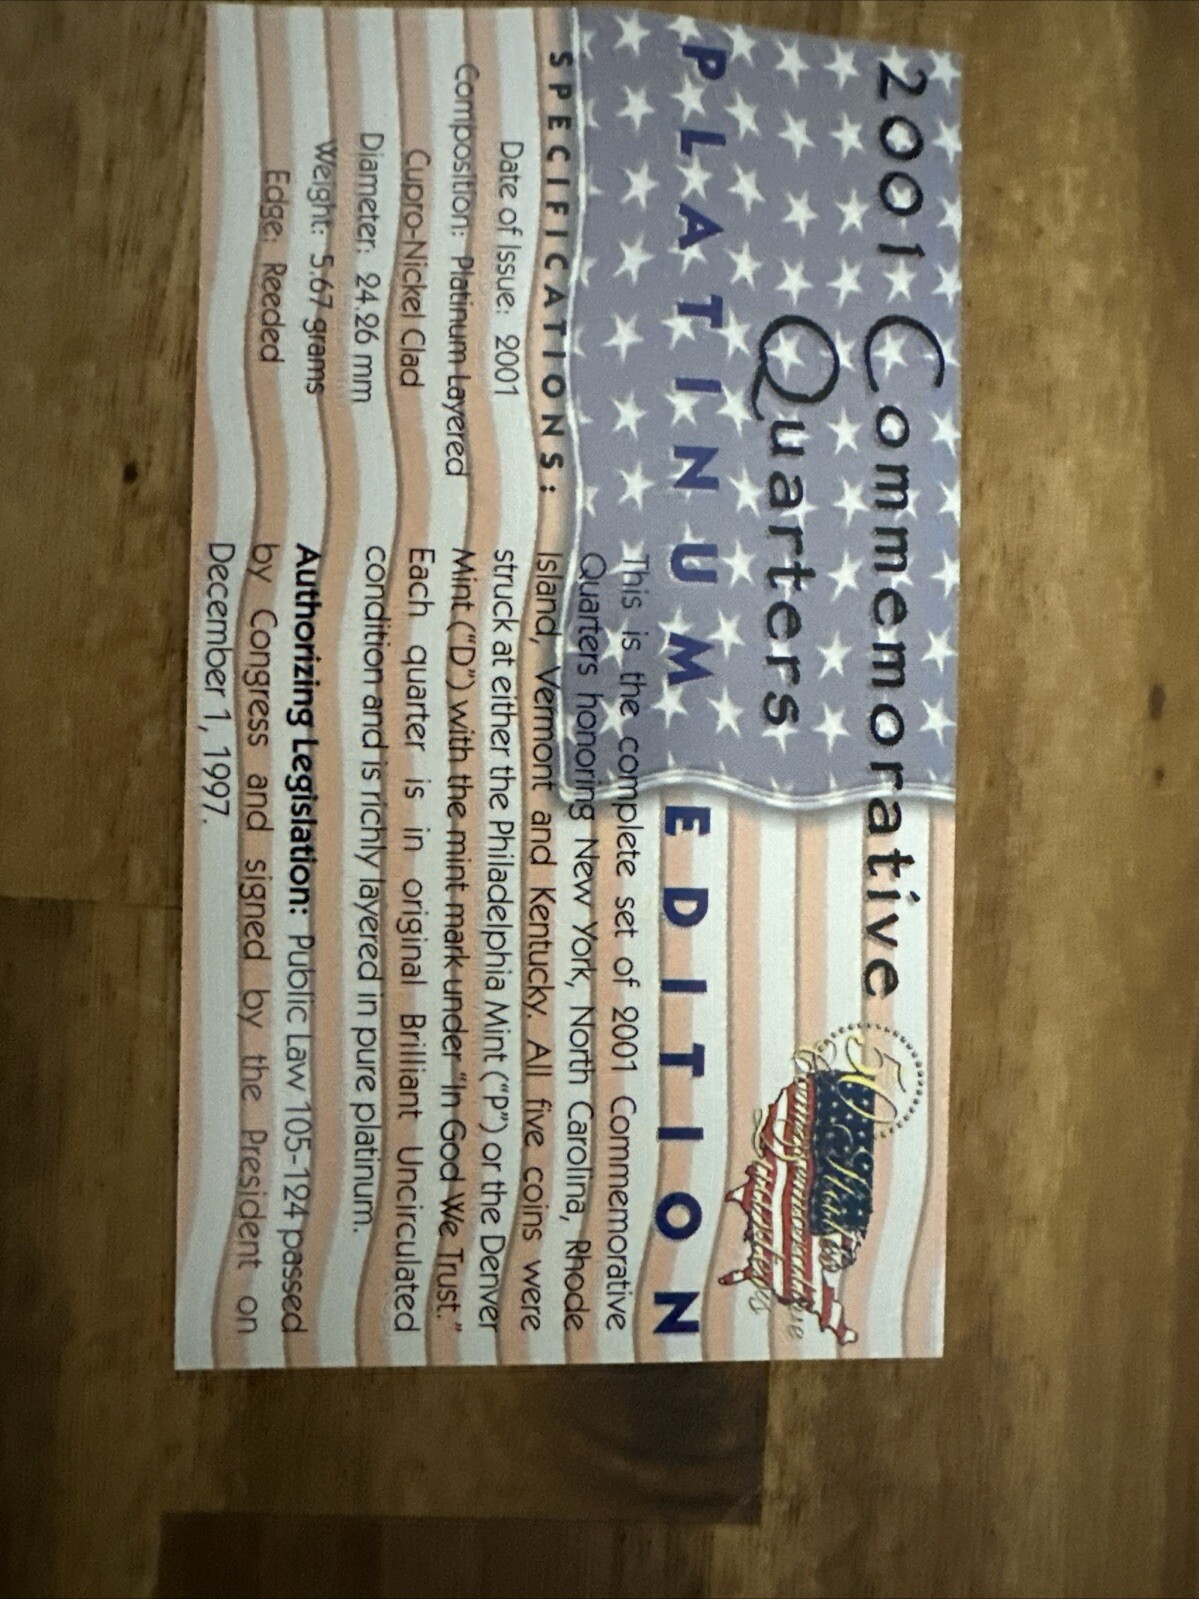 2001 Commemorative
Quarters
PLATINUM EDITION
SPECIFICATIONS:
Date of Issue: 2001
Composition: Platinum Layered
Cupro-Nickel Clad
Diameter: 24.26 mm
Weight: 5.67 grams
Edge: Reeded
This is the complete set of 2001 Commemorative
Quarters honoring New York, North Carolina, Rhode
Island, Vermont and Kentucky. All five coins were
struck at either the Philadelphia Mint ("P") or the Denver
Mint ("D") with the mint mark under "In God We Trust."
Each quarter is in original Brilliant Uncirculated
condition and is richly layered in pure platinum.
Authorizing Legislation: Public Law 105-124 passed
by Congress and signed by the President on
December 1, 1997.
50 States
Commemorative
Quarters